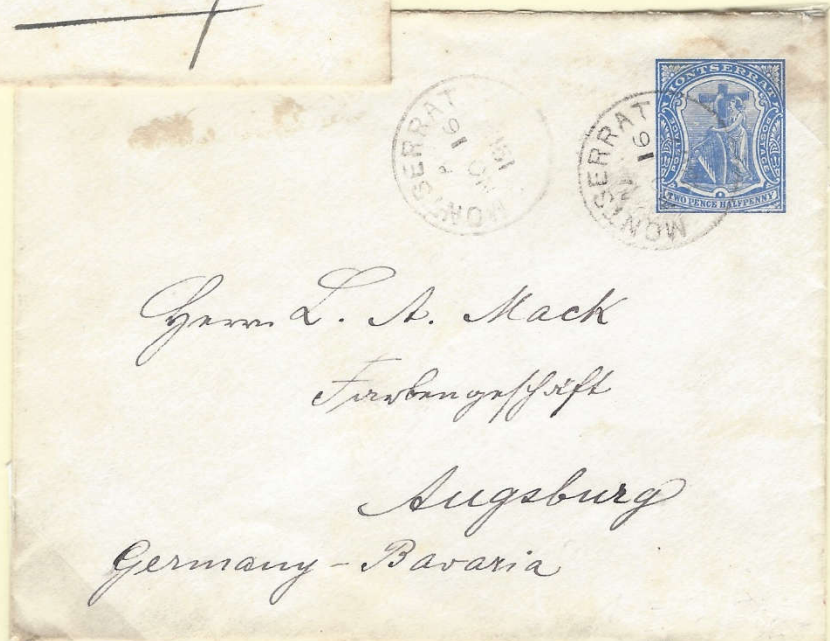 MONTSERRAT
POSTAGE
TWO PENCE HALFPENNY
MONTSERRAT
16
NO
MONTSERRAT
16
Herrn L. A. Mack
Farbengeschäft
Augsburg
Germany - Bavaria